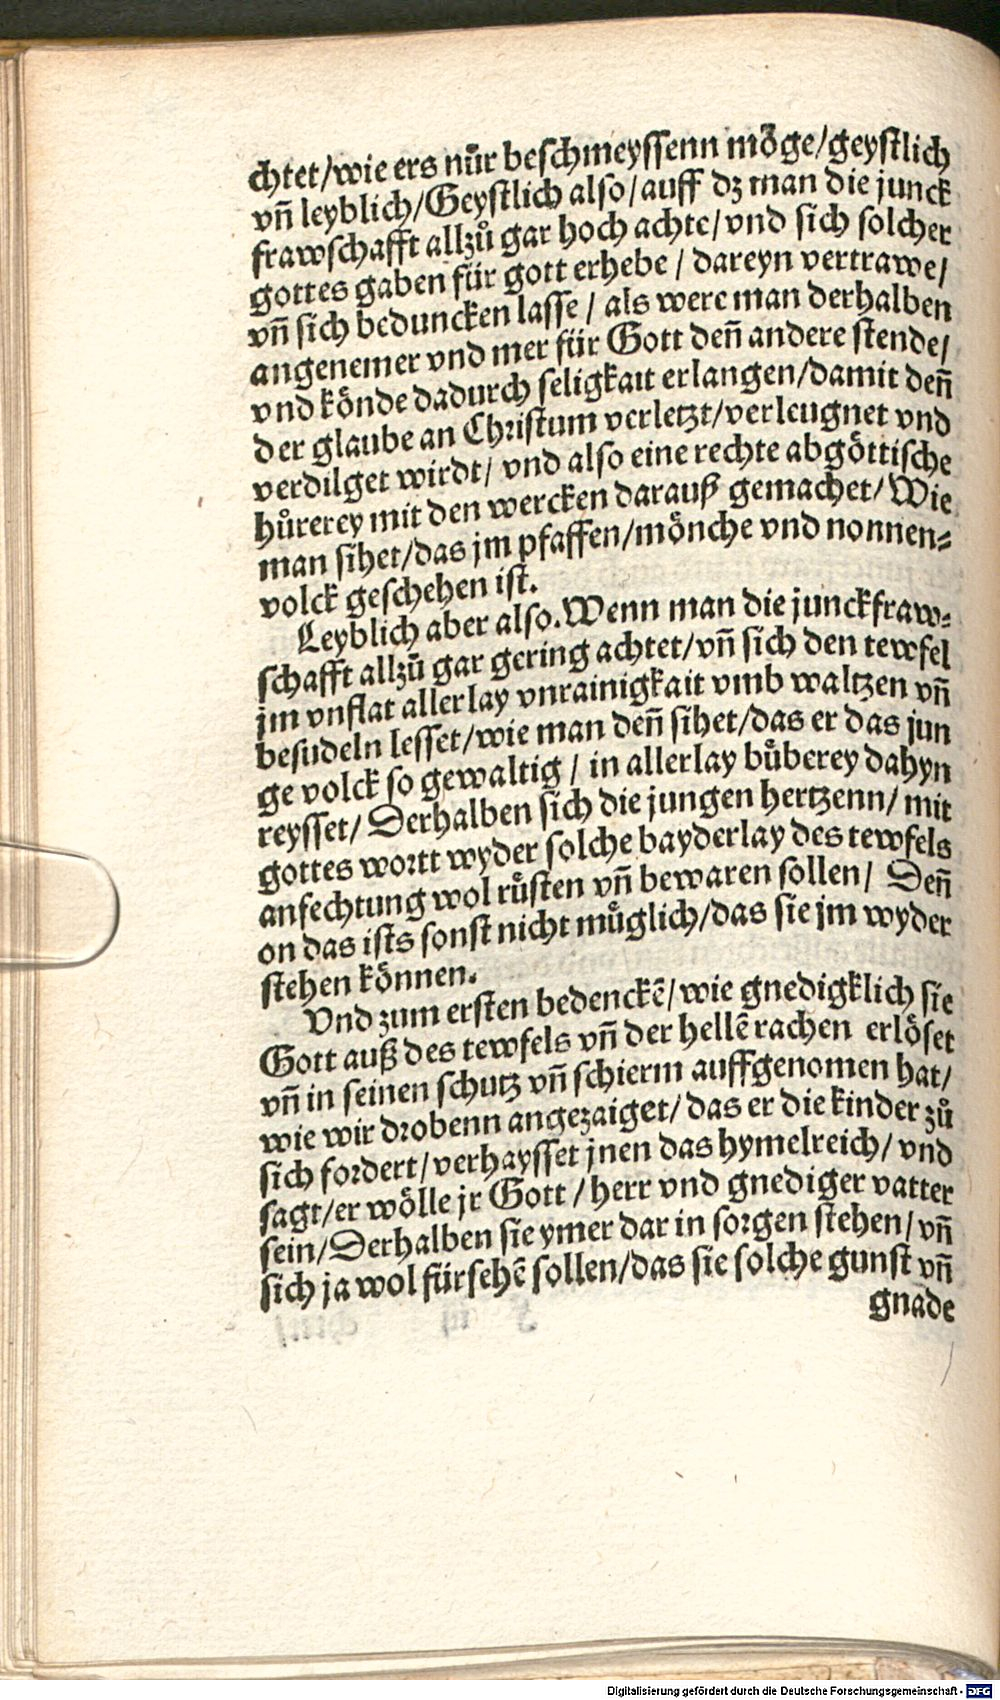 chtet/wie ers nůr beschmeyssenn möge/geystlich
vñ leyblich/Geystlich also/auff dz man die junck
frawschafft allzů gar hoch achte/vnd sich solcher
gottes gaben für gott erhebe / dareyn vertrawe/
vñ sich beduncken lasse / als were man derhalben
angenemer vnd mer für Gott deñ andere stende/
vnd könde dadurch seligkait erlangen/damit deñ
der glaube an Christum verletzt/verleugnet vnd
verdilget wirdt/ vnd also eine rechte abgöttische
hůrerey mit den wercken darauß gemachet/Wie
man sihet/das jm pfaffen/mönche vnd nonnen⸗
volck geschehen ist.
Leyblich aber also.Wenn man die junckfraw⸗
schafft allzů gar gering achtet/vñ sich den tewfel
jm vnflat allerlay vnrainigkait vmb waltzen vñ
besudeln lesset/wie man deñ sihet/das er das jun
ge volck so gewaltig / in allerlay bůberey dahyn
reysset/ Derhalben sich die jungen hertzenn/ mit
gottes wortt wyder solche bayderlay des tewfels
anfechtung wol růsten vñ bewaren sollen/ Deñ
on das ists sonst nicht můglich/das sie jm wyder
stehen können.
Vnd zum ersten bedenckē/wie gnedigklich sie
Gott auß des tewfels vñ der hellē rachen erlöset
vñ in seinen schutz vñ schierm auffgenomen hat/
wie wir drobenn angezaiget/das er die kinder zů
sich fordert/verhaysset jnen das hymelreich/ vnd
sagt/er wölle jr Gott /herr vnd gnediger vatter
sein/Derhalben sie ymer dar in sorgen stehen/ vñ
sich ja wol fürsehē sollen/das sie solche gunst vñ
gnade
Digitalisierung gefördert durch die Deutsche Forschungsgemeinschaft - DFG